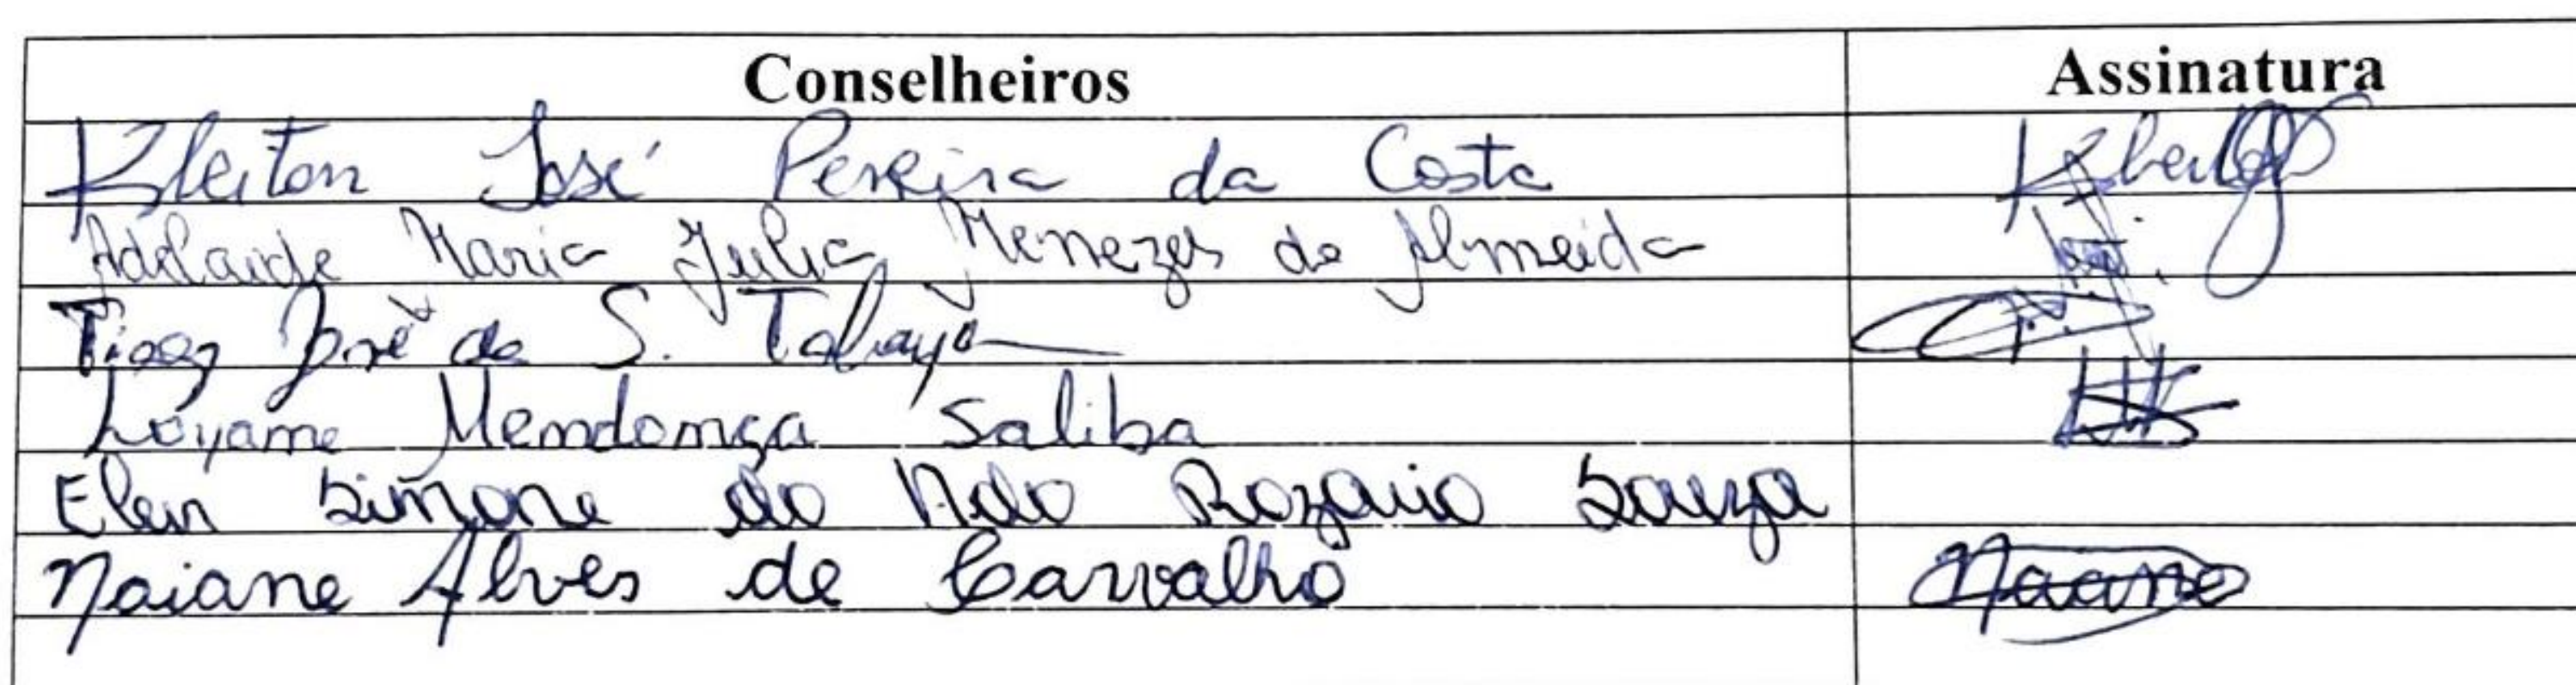 Conselheiros Assinatura
Kleiton José Pereira da Costa
Adelaide Maria Julia Menezes de Almeida
José de S.
Loyame Mendonça Saliba
Elen Simone do Ndo Rozario Souza
Naiane Alves de Carvalho Naiane